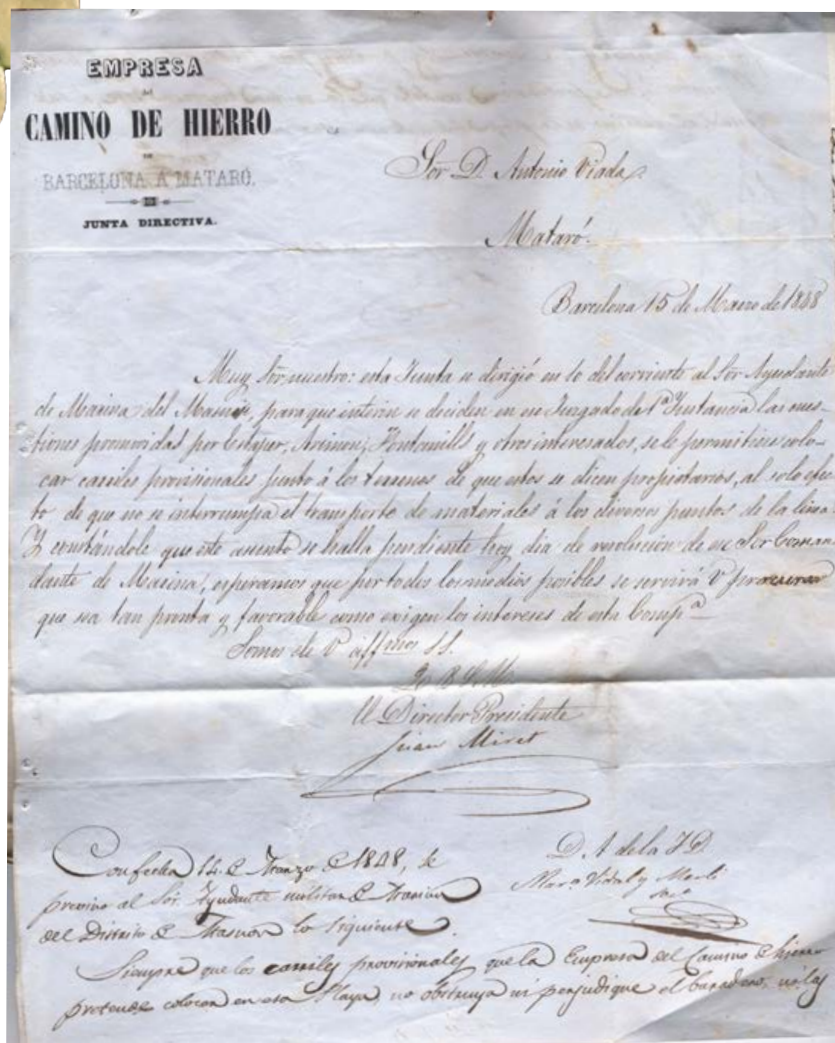 EMPRESA
DEL
CAMINO DE HIERRO
DE
BARCELONA A MATARÓ.
JUNTA DIRECTIVA.
Sor. D. Antonio Viada
Mataró.
Barcelona 15 de Marzo de 1848
Muy Sor. nuestro: esta Junta se dirigió en 10 del corriente al Sor Ayudante
de Marina del Masnou, para que interin se deciden en ese Juzgado de 1ª Instancia las cues-
tiones promovidas por Estaper, Arimon, Fontanills y otros interesados, se le permitiese colo-
car carriles provisionales junto á los terrenos de que estos se dicen propietarios, al solo efec-
to de que no se interrumpa el transporte de materiales á los diversos puntos de la linea
Y constándole que este asunto se halla pendiente hoy dia de resolucion de ese Sor Coman-
dante de Marina, esperamos que por todos los medios posibles se servirá V procurar
que sea tan pronta y favorable como exigen los intereses de esta Compª
Somos de V affmos SS.
Q. B. S. M.
El Director Presidente
Juan Miret
D. A. de la J D
Vidal y Merli
Con fecha 14 de Marzo de 1848, se
previno al Sor. Ayudante militar de Marina
del Distrito de Masnou lo siguiente.
Siempre que los carriles provisionales que la Empresa del Camino de hierro
pretende colocar en esa Playa, no obstruya ni perjudique el baradero, no las